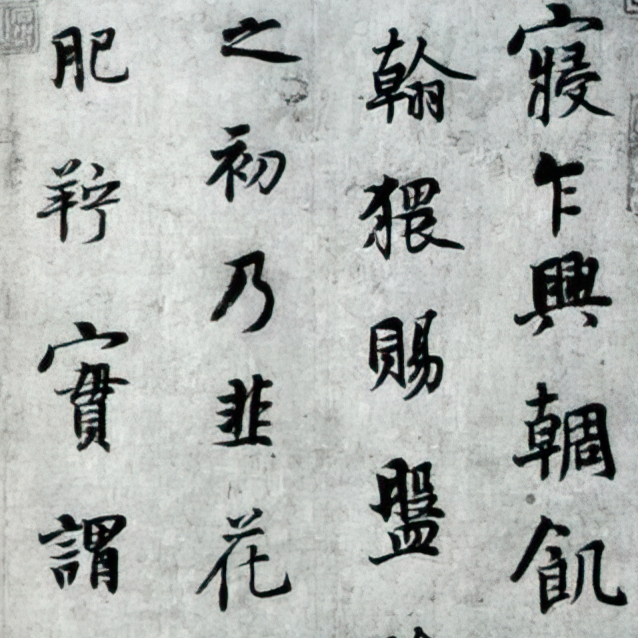 寢乍興輖飢
翰猥賜盤
之初乃韭花
肥羜實謂